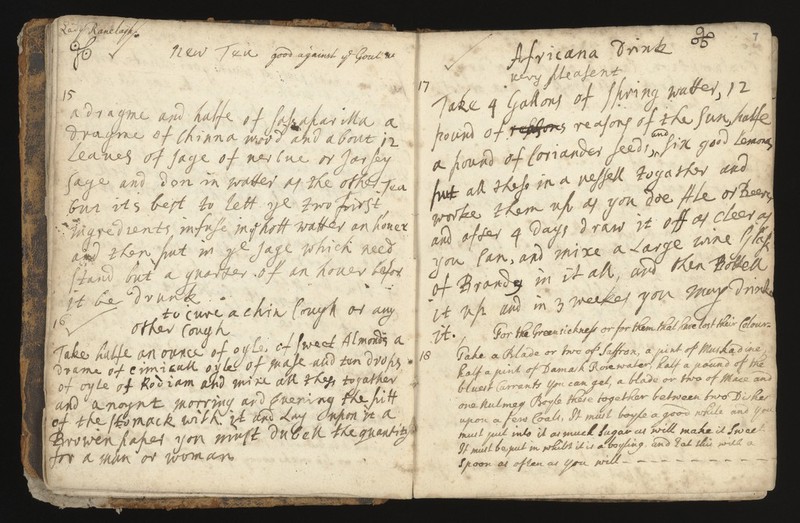 Lady Ranelagh
New Tea good against ye Gout &c
15
a dragme and halfe of Sasaparilla a
dragme of Chinna wood and about 12
Leaves of Sage of or Jarsey
Sage and don in watter as the other Tea
but its best to lett ye two first
Ingredients infuse in hott watter an houer
and then put in ye Sage which need
stand but a quarter of an houer befor
it be drunk
16
to cure a chin Cough or any
other Cough
Take halfe an ounce of oyle of sweet Almonds a
drame of oyle of mase and ten drops
of oyle of Rodiam and mixe all thes togather
and anoynt morning and evening the pitt
of the stomack with it and Lay upon it a
Browen paper you must dubell the quantity
for a man or woman
7
Africana Drink
very pleasent
17
Take 4 Gallons of Spring watter, 12
pound of reasons of the Sun, halfe
a pound of Coriander Seeds, and six good Lemons
put all these in a vessell togather and
worke them up as you doe Ale or Beere
and after 4 days draw it off as cleer as
you Can, and mixe a Large wine
of Brandy in it all, and then Bottell
it up and in 3 weekes you may drink
it.
For the Greensickness or for them that have lost their Colour
18
Take a Blade or two of Saffron, a pint of Muskadine
half a pint of Damask Rosewater, half a pound of the
bluest Currents you can get, a blade or two of Mace and
one nutmeg Boyle these together between two Dishes
upon a few Coals, It must boyle a good while and you
must put into it as much Sugar as will make it Sweet
It must be put in whilst it is a boyling, and Eat this with a
Spoon as often as you will